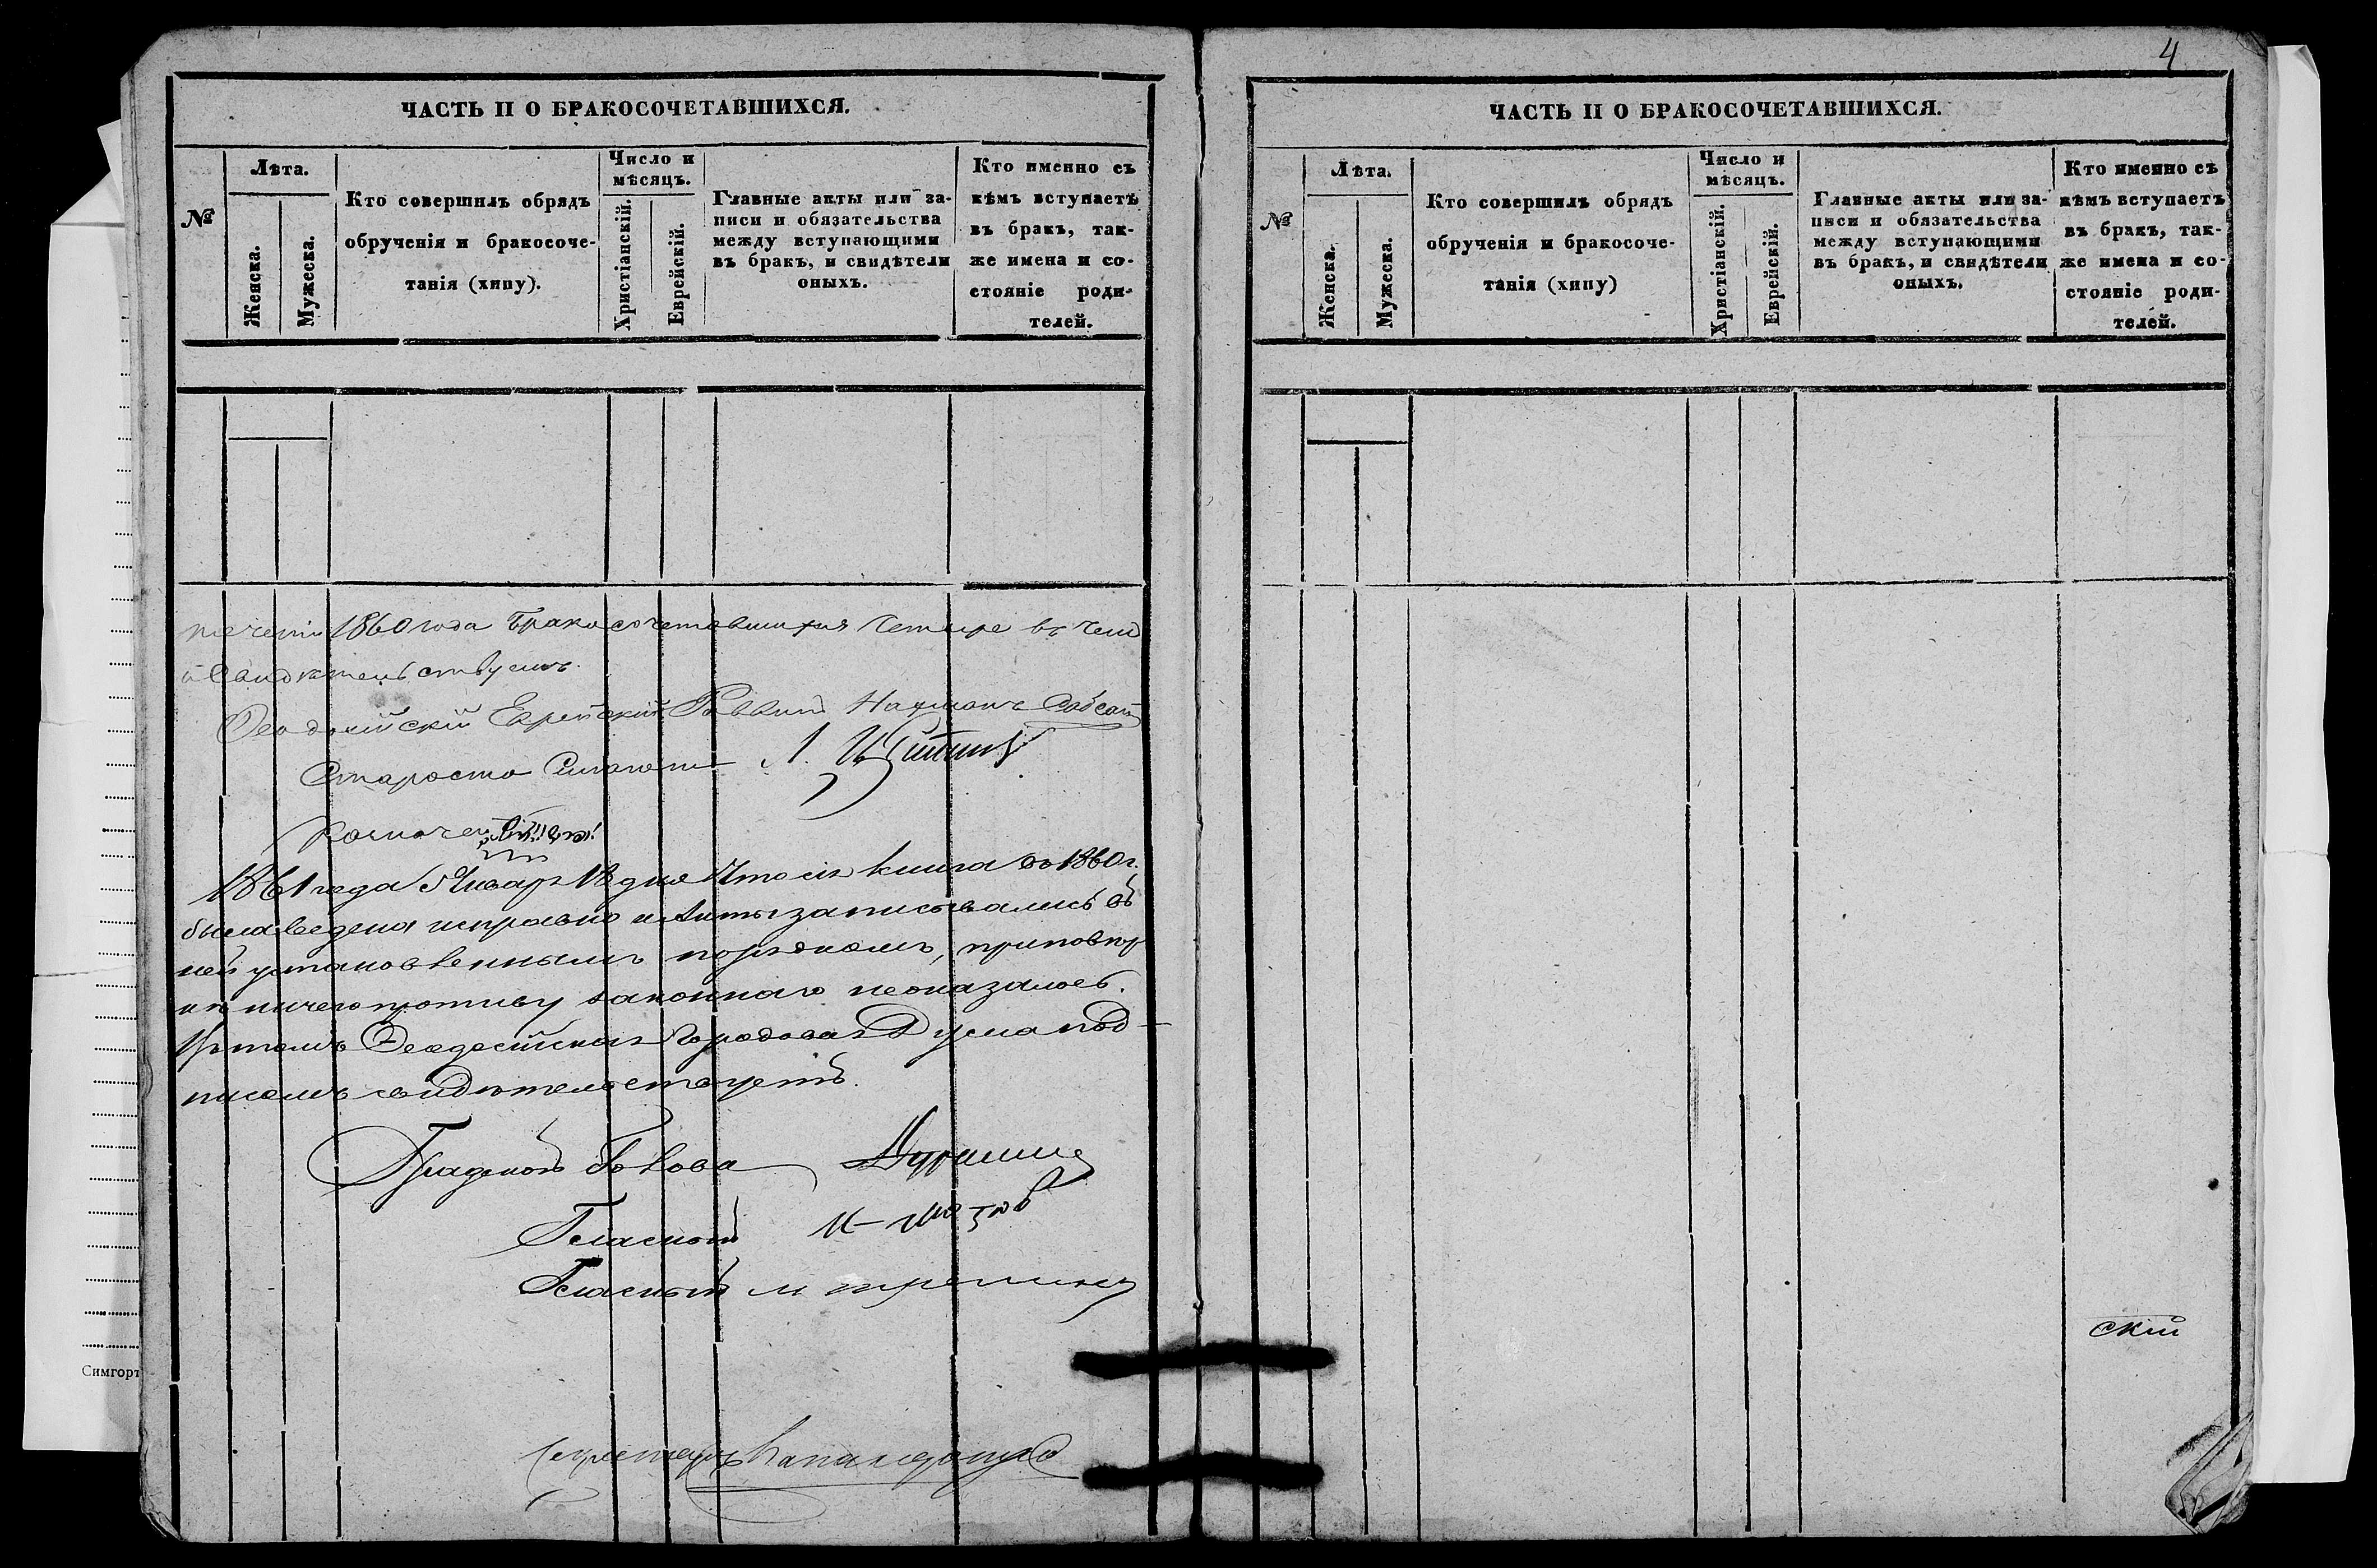 ЧАСТЬ II О БРАКОСОЧЕТАВШИХСЯ.
№
Лѣта.
Женска.
Мужеска.
Кто совершилъ обрядъ
обрученія и бракосоче-
танія (хипу).
Число и
мѣсяцъ.
Христіанскій.
Еврейскій.
Главные акты или за-
писи и обязательства
между вступающими
въ бракъ, и свидѣтели
оныхъ.
Кто именно съ
кѣмъ вступаетъ
въ бракъ, так-
же имена и со-
стояніе роди-
телей.
течении 1860 года Бракосочетавшихся четыре въ чемъ
и свидѣтельствуемъ.
Феодосійскій Еврейскій Раввинъ Нахманъ
Староста Л.
1861 года Января 18 дня Что сія книга въ 1860 г.
была ведена исправно и Акты записывались въ
ней установленнымъ порядкомъ, при повѣр
кѣ ничего противу законнаго неоказалось.
Въ томъ Феодосійская Городовая Дума под-
писомъ свидѣтельствуетъ.
Градской Голова
Гласный
Гласный
Секретарь
4
ЧАСТЬ II О БРАКОСОЧЕТАВШИХСЯ.
№
Лѣта.
Женска.
Мужеска.
Кто совершилъ обрядъ
обрученія и бракосоче-
танія (хипу)
Число и
мѣсяцъ.
Христіанскій.
Еврейскій.
Главные акты или за-
писи и обязательства
между вступающими
въ бракъ, и свидѣтели
оныхъ.
Кто именно съ
кѣмъ вступаетъ
въ бракъ, так-
же имена и со-
стояніе роди-
телей.
скій
Симгорт